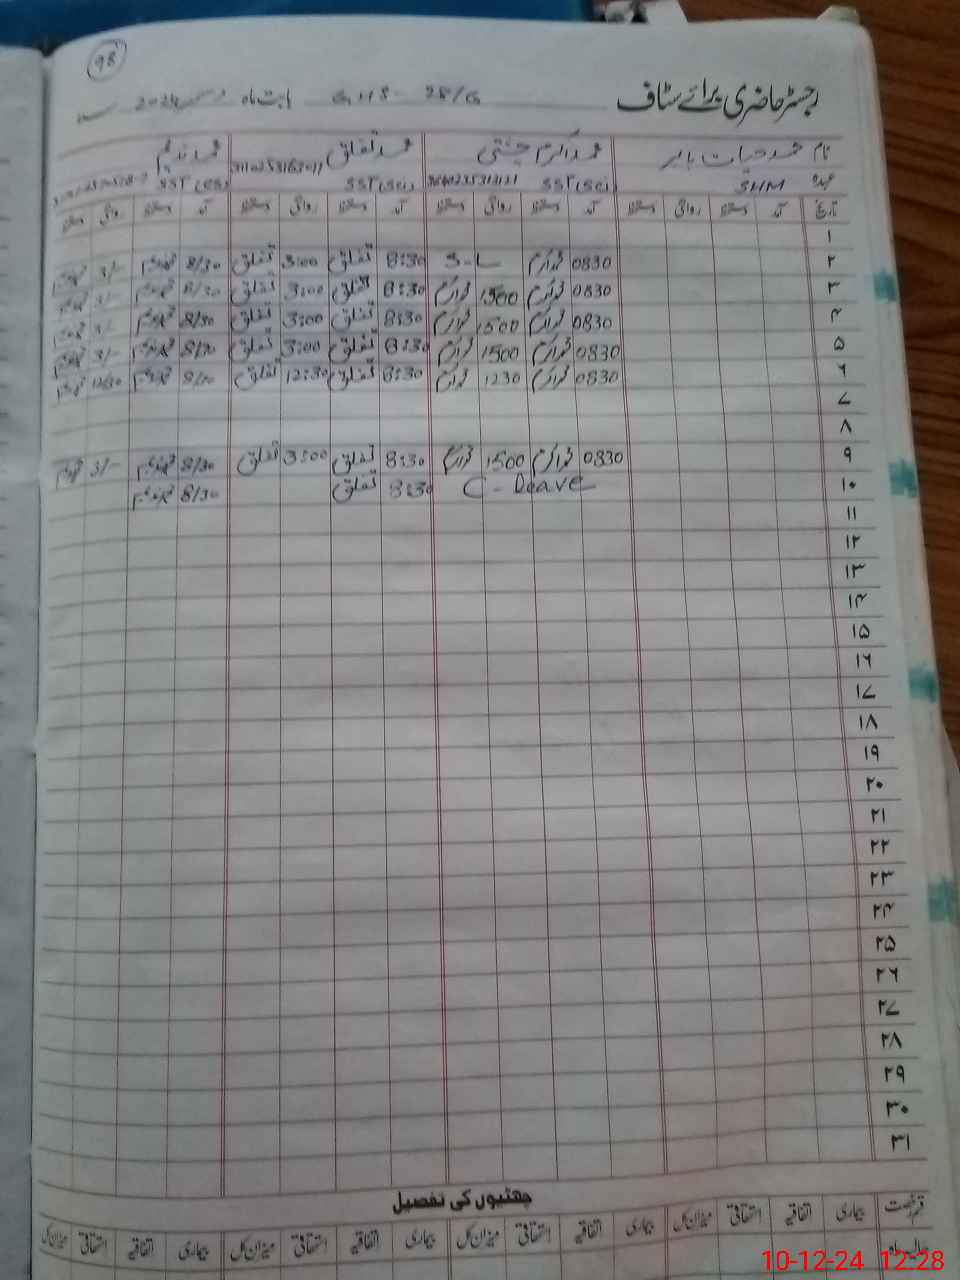 98
رجسٹر حاضری برائے سٹاف GHS- 28/G بابت ماہ دسمبر 2024
نام محمد حیات بابر محمد اکرم چشتی محمد تغلق محمد ندیم
عہدہ SHM SST(Sci) SST(Sci)
تاریخ آمد دستخط روانگی دستخط آمد دستخط روانگی دستخط آمد دستخط روانگی دستخط آمد دستخط روانگی دستخط
۱
۲ 0830 محمد اکرم S-L 8:30 تغلق 3:00 تغلق 8/30 محمد ندیم 3/-
۳ 0830 محمد اکرم 1500 محمد اکرم 8:30 تغلق 3:00 تغلق 8/30 محمد ندیم 3/-
۴ 0830 محمد اکرم 1500 محمد اکرم 8:30 تغلق 3:00 تغلق 8/30 محمد ندیم 3/-
۵ 0830 محمد اکرم 1500 محمد اکرم 8:30 تغلق 3:00 تغلق 8/30 محمد ندیم 3/-
۶ 0830 محمد اکرم 1230 محمد اکرم 8:30 تغلق 12:30 تغلق 8/30 محمد ندیم 12/30
۷
۸
۹ 0830 محمد اکرم 1500 محمد اکرم 8:30 تغلق 3:00 تغلق 8/30 محمد ندیم 3/-
۱۰ C-Leave 8:30 تغلق 8/30 محمد ندیم
۱۱
۱۲
۱۳
۱۴
۱۵
۱۶
۱۷
۱۸
۱۹
۲۰
۲۱
۲۲
۲۳
۲۴
۲۵
۲۶
۲۷
۲۸
۲۹
۳۰
۳۱
چھٹیوں کی تفصیل
قسم رخصت بیماری اتفاقیہ استحقاقی میزان کل بیماری اتفاقیہ استحقاقی میزان کل بیماری اتفاقیہ استحقاقی میزان کل
10-12-24 12:28